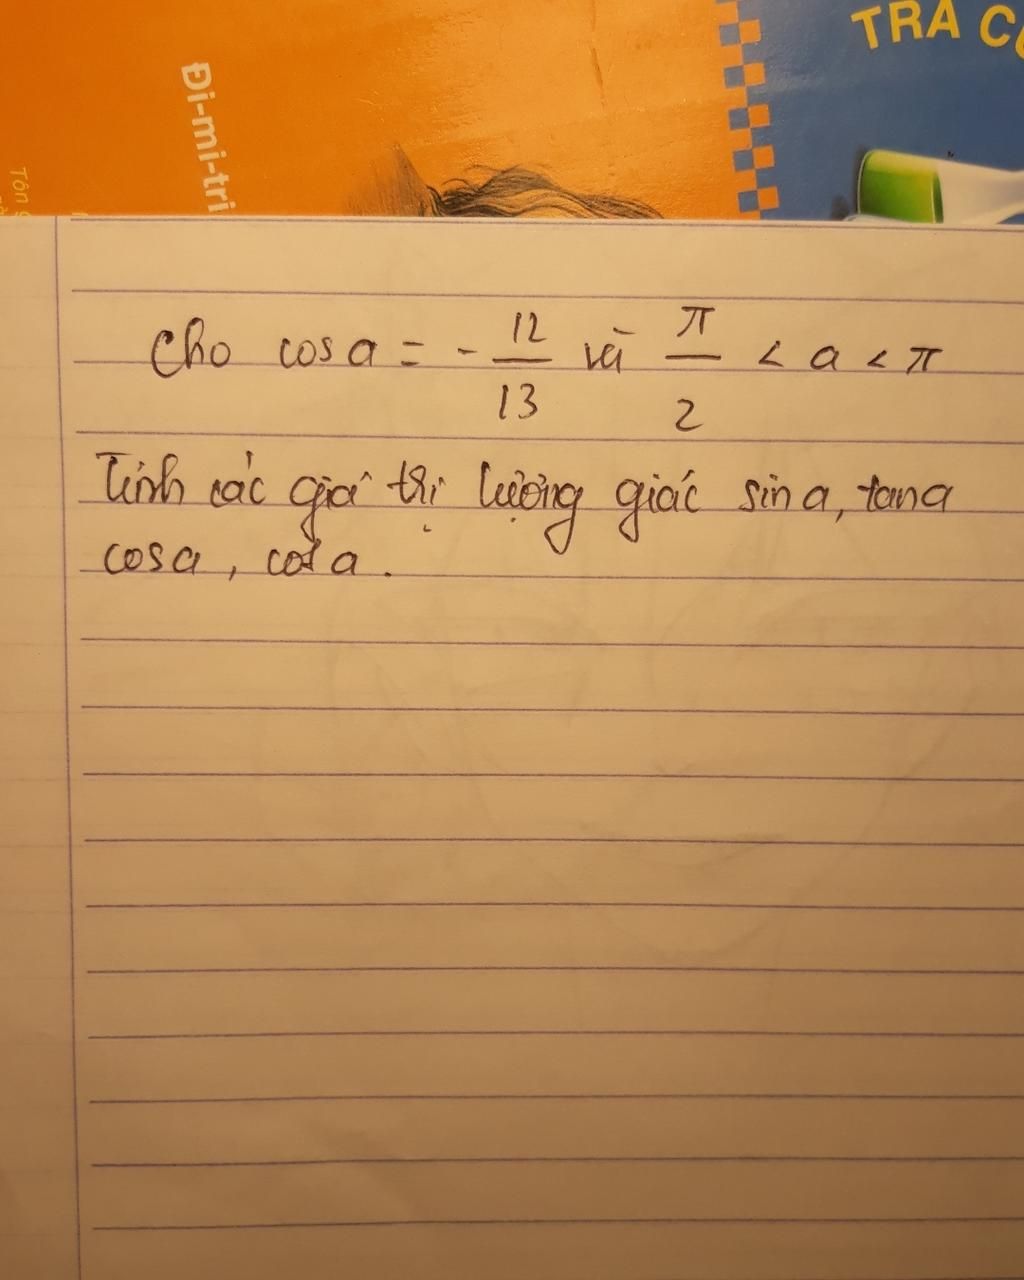 TRA C
Đi-mi-tri
Cho cos a = - 12/13 và π/2 < a < π
Tính các giá trị lượng giác sin a, tan a
cos a, cot a.